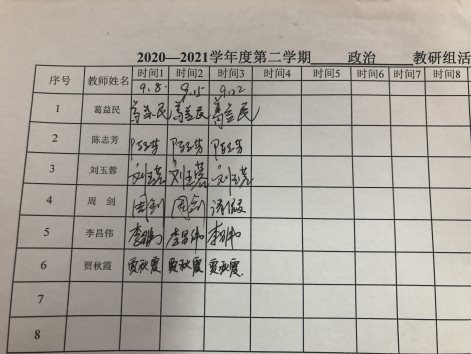 2020—2021学年度第二学期 政治 教研组活
序号 教师姓名 时间1 时间2 时间3 时间4 时间5 时间6 时间7 时间8
9.8. 9.15 9.22
1 葛益民 葛益民 葛益民 葛益民
2 陈志芳 陈志芳 陈志芳 陈志芳
3 刘玉蓉 刘玉蓉 刘玉蓉 刘玉蓉
4 周剑 周剑 周剑 请假
5 李昌伟 李昌伟 李昌伟 李昌伟
6 贾秋霞 贾秋霞 贾秋霞 贾秋霞
7
8